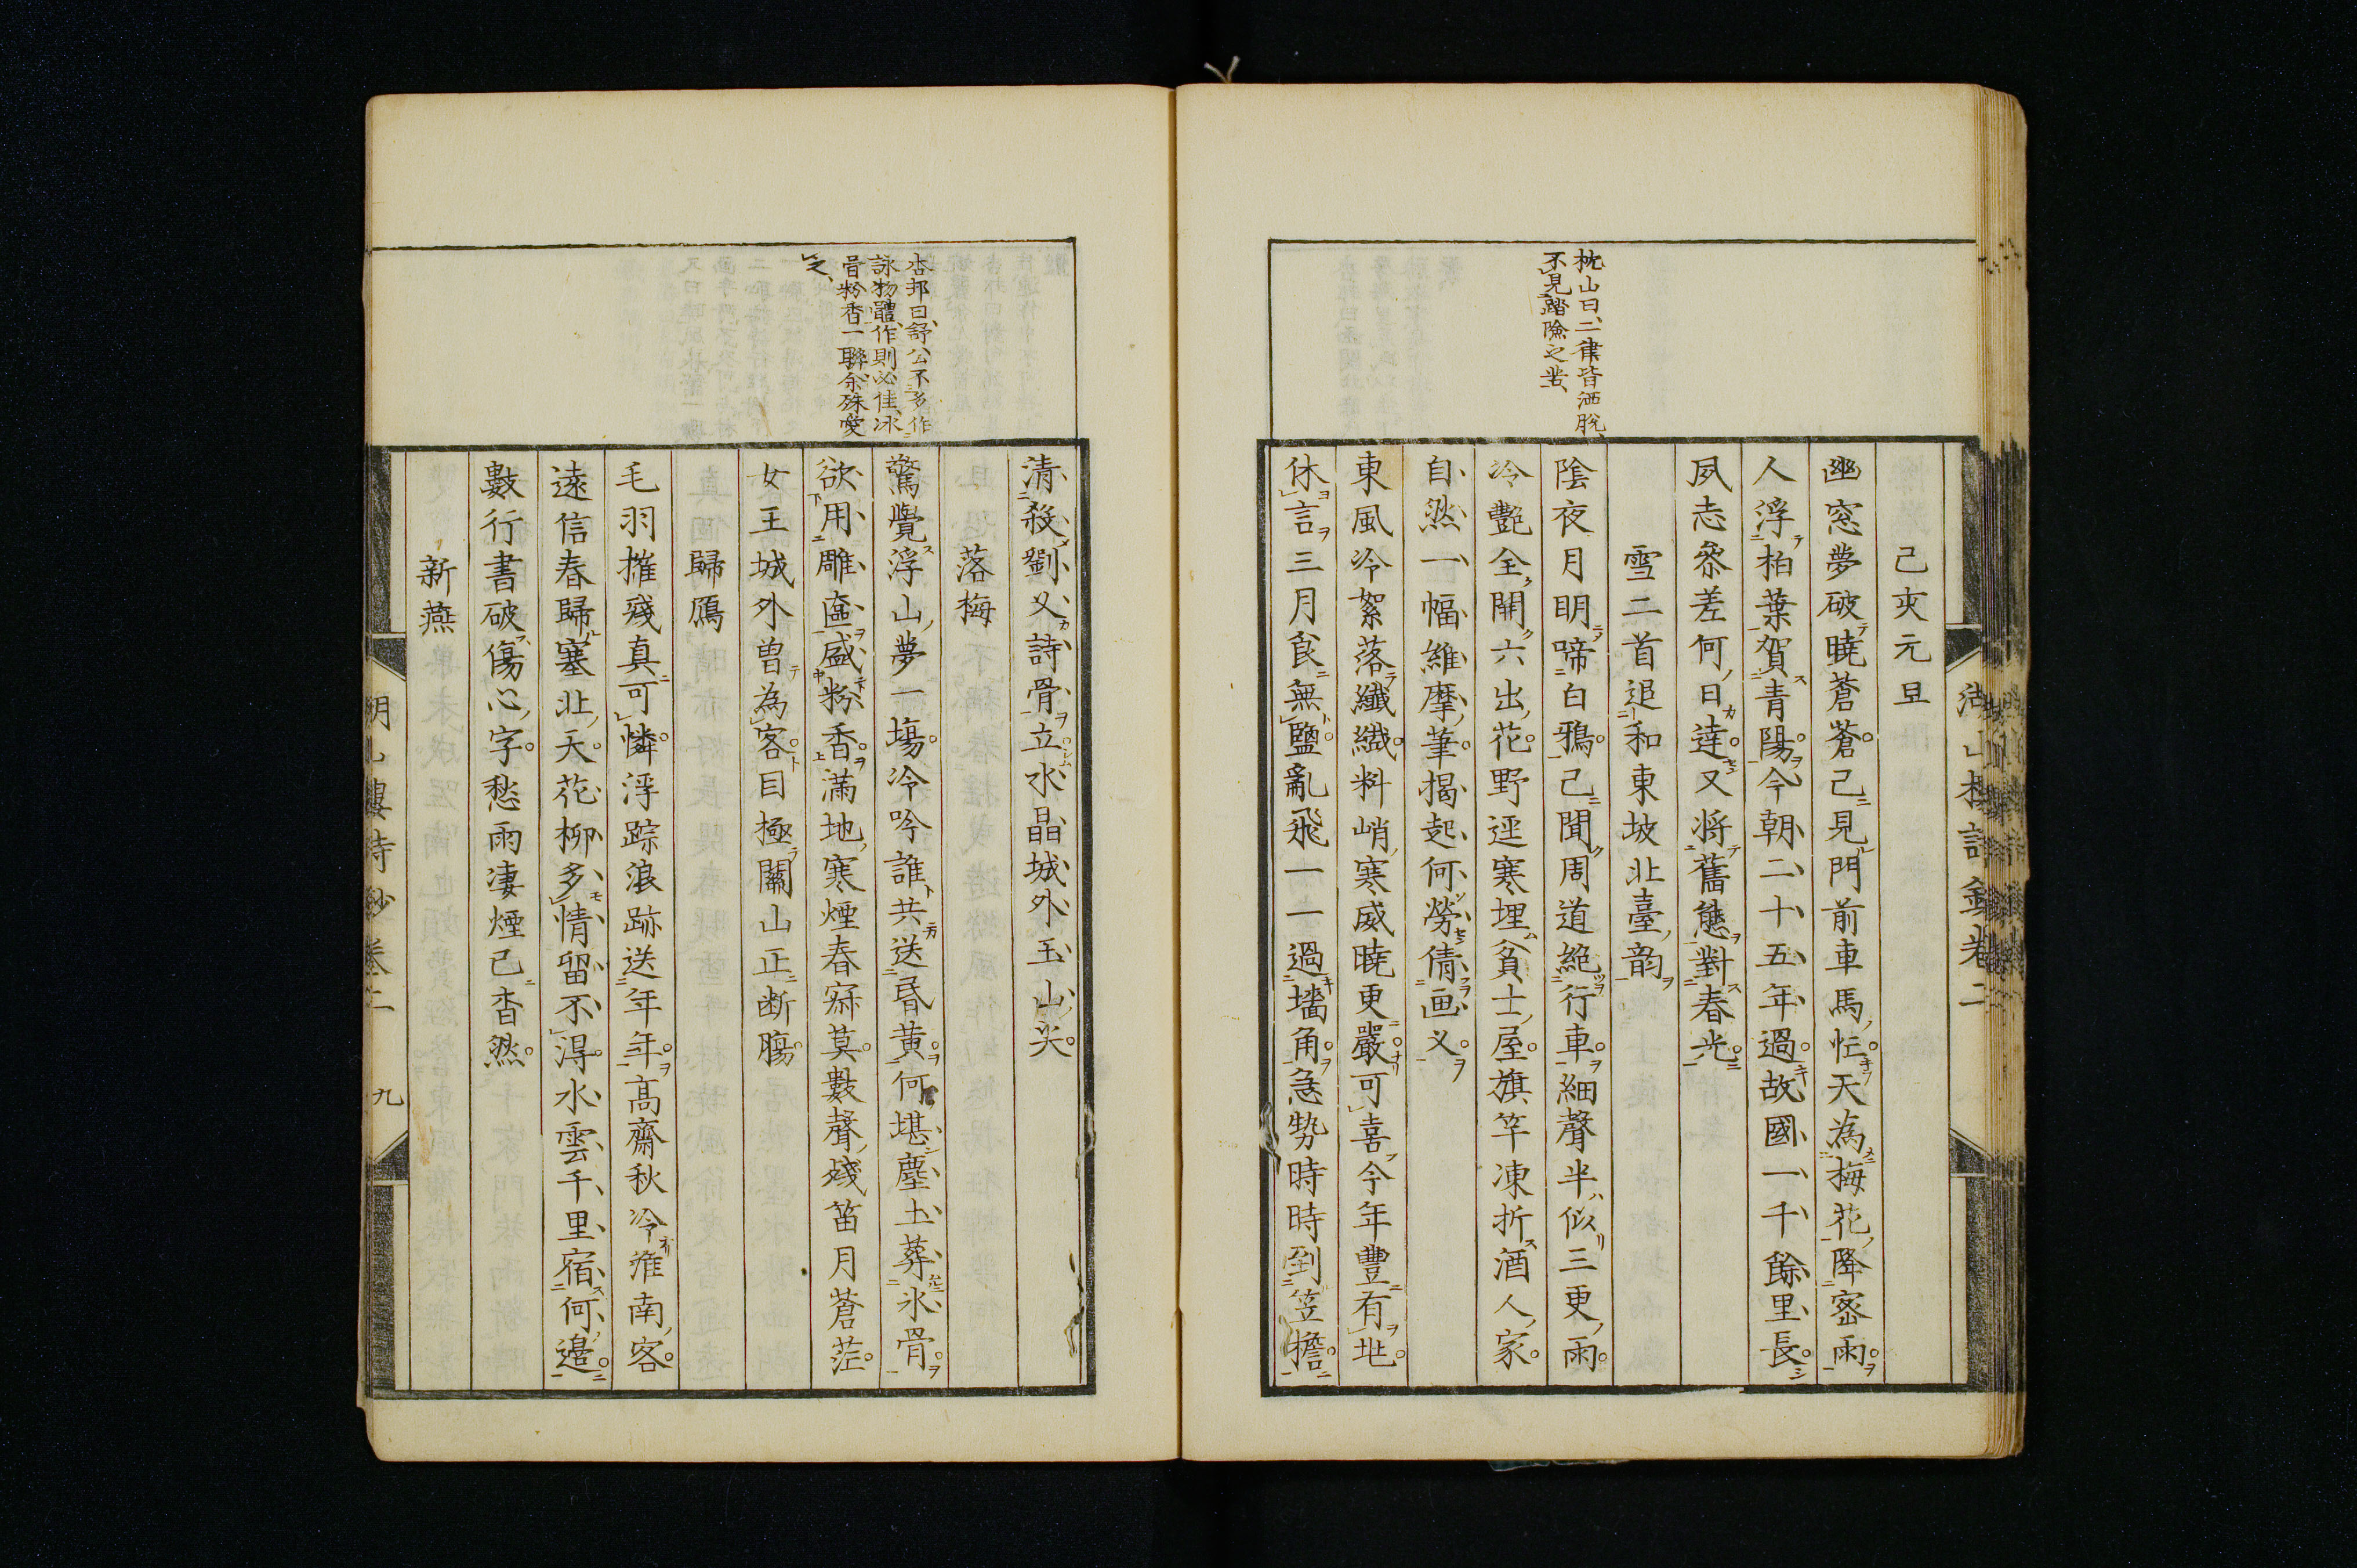 枕山曰、二律皆洒脫、
不見踏險之苦、
己亥元旦
幽窓夢破曉蒼蒼己見門前車馬忙天為梅花降密雨
人浮柏葉賀青陽今朝二十五年過故國一千餘里長
夙志參差何日達又將舊態對春光
雪二首追和東坡北臺韵
陰夜月明啼白鴉己聞周道絕行車細聲半似三更雨
冷艷全開六出花野逕寒埋貧士屋旗竿凍折酒人家
自然一幅維摩筆揭起何勞倩画叉
東風冷絮落纖纖料峭寒威曉更嚴可喜今年豐有兆
休言三月食無鹽亂飛一一過墻角急勢時時到笠檐
杏邨曰、舒公不多作
詠物體、作則必佳、冰
骨粉香一聯、余殊愛
之、
清殺劉叉詩骨立水晶城外玉山尖
落梅
驚覺浮山夢一場冷吟誰共送昏黃何堪塵土葬氷骨
欲用雕奩盛粉香滿地寒煙春寂莫數聲殘笛月蒼茫
女王城外曾為客目極關山正断腸
歸鴈
毛羽摧殘真可憐浮踪浪跡送年年高齋秋冷淮南客
遠信春歸塞北天花柳多情留不得水雲千里宿何邊
數行書破傷心字愁雨凄煙已杳然
新燕
樓詩鈔卷二
九